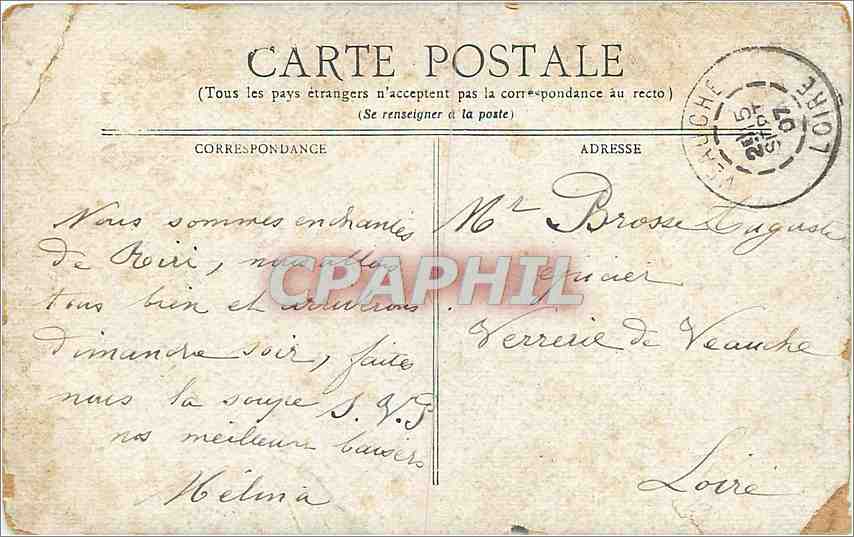 CARTE POSTALE
(Tous les pays étrangers n'acceptent pas la correspondance au recto)
(Se renseigner à la poste)
CORRESPONDANCE
Nous sommes enchantés
de Riri, nous allons
tous bien et arriverons
dimandre soir, faites
nous la soupe S. V. P
nos meilleurs baisers
Mélina
ADRESSE
Mr Brosse Auguste
épicier
Verrerie de Veauche
Loire
VEAUCHE LOIRE
5
SEPT
07
CPAPHIL